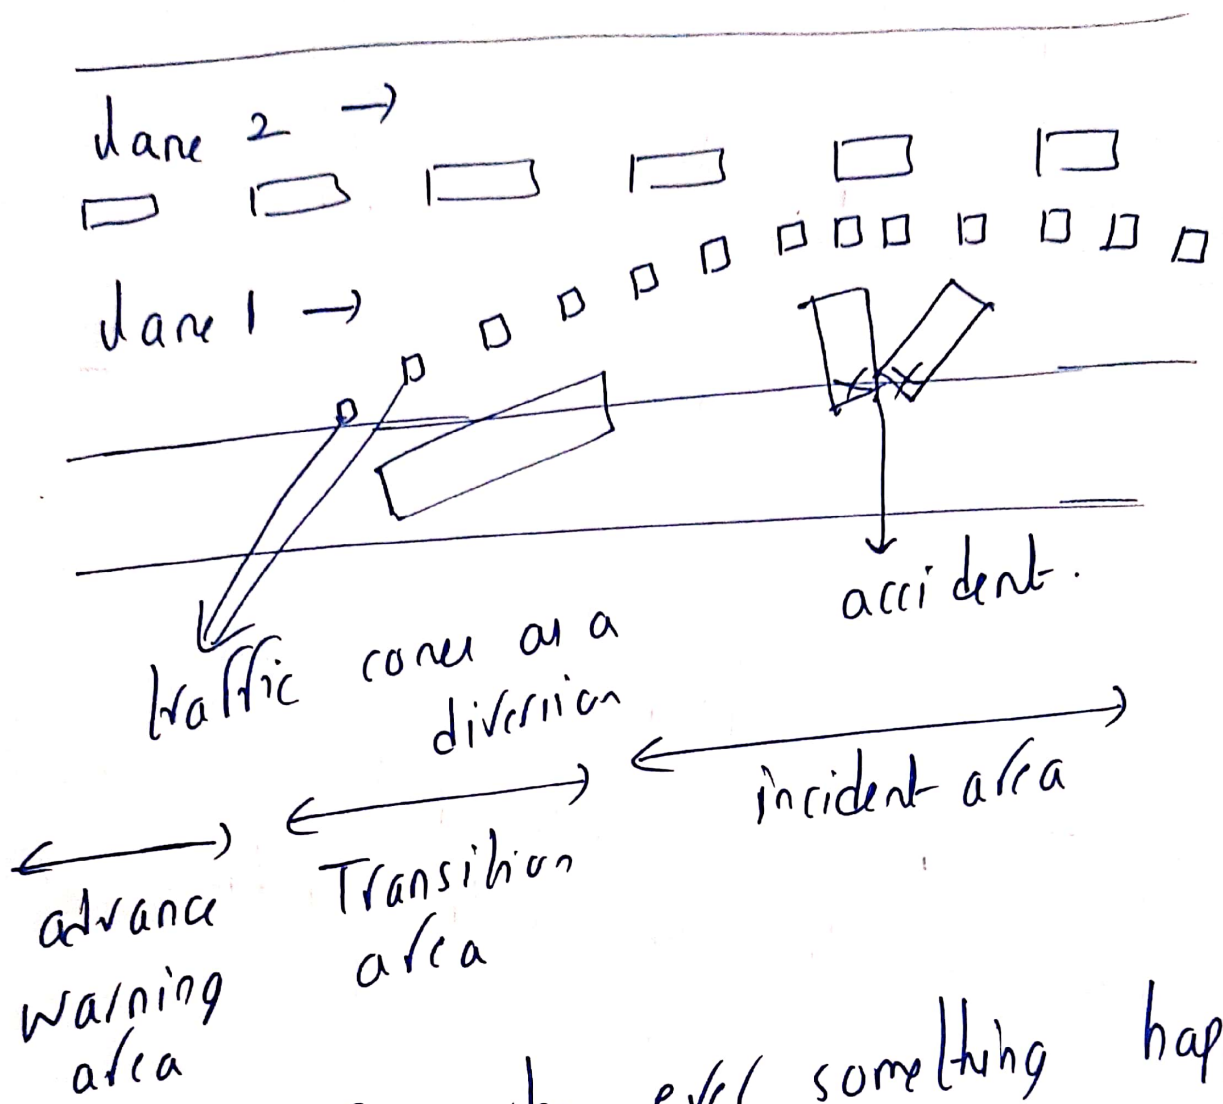 Lane 2
Lane 1
accident.
traffic cones as a
diversion
incident area
Transition
area
advance
warning
area
ever something hap